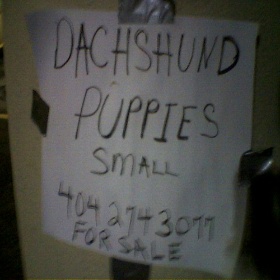 DACHSHUND
PUPPIES
SMALL
404 274 3077
FOR SALE